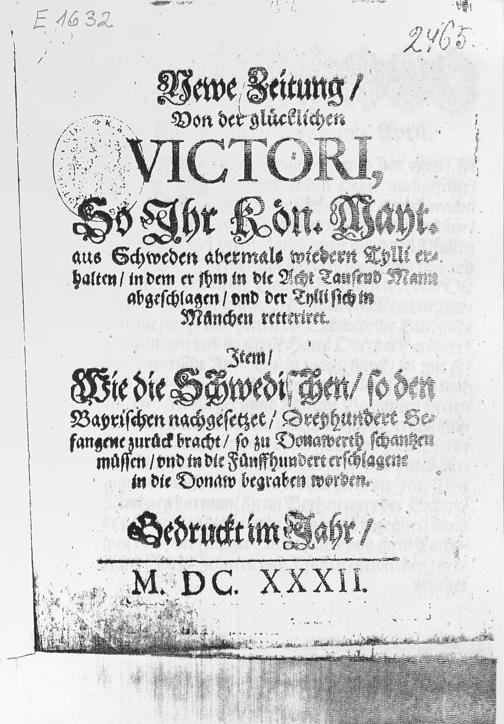 E 1632
2465.
Newe Zeitung /
Von der glücklichen
VICTORI,
So Ihr Kön. Mayt.
aus Schweden abermals wiedern Tylli er-
halten / in dem er ihm in die Acht Tausend Mann
abgeschlagen / vnd der Tylli sich in
München retteriret.
Item /
Wie die Schwedischen / so den
Bayrischen nachgesetzet / Dreyhundert Ge-
fangene zurück bracht / so zu Donawerth schantzen
müssen / vnd in die Fünffhundert erschlagene
in die Donaw begraben worden.
Gedruckt im Jahr /
M. DC. XXXII.